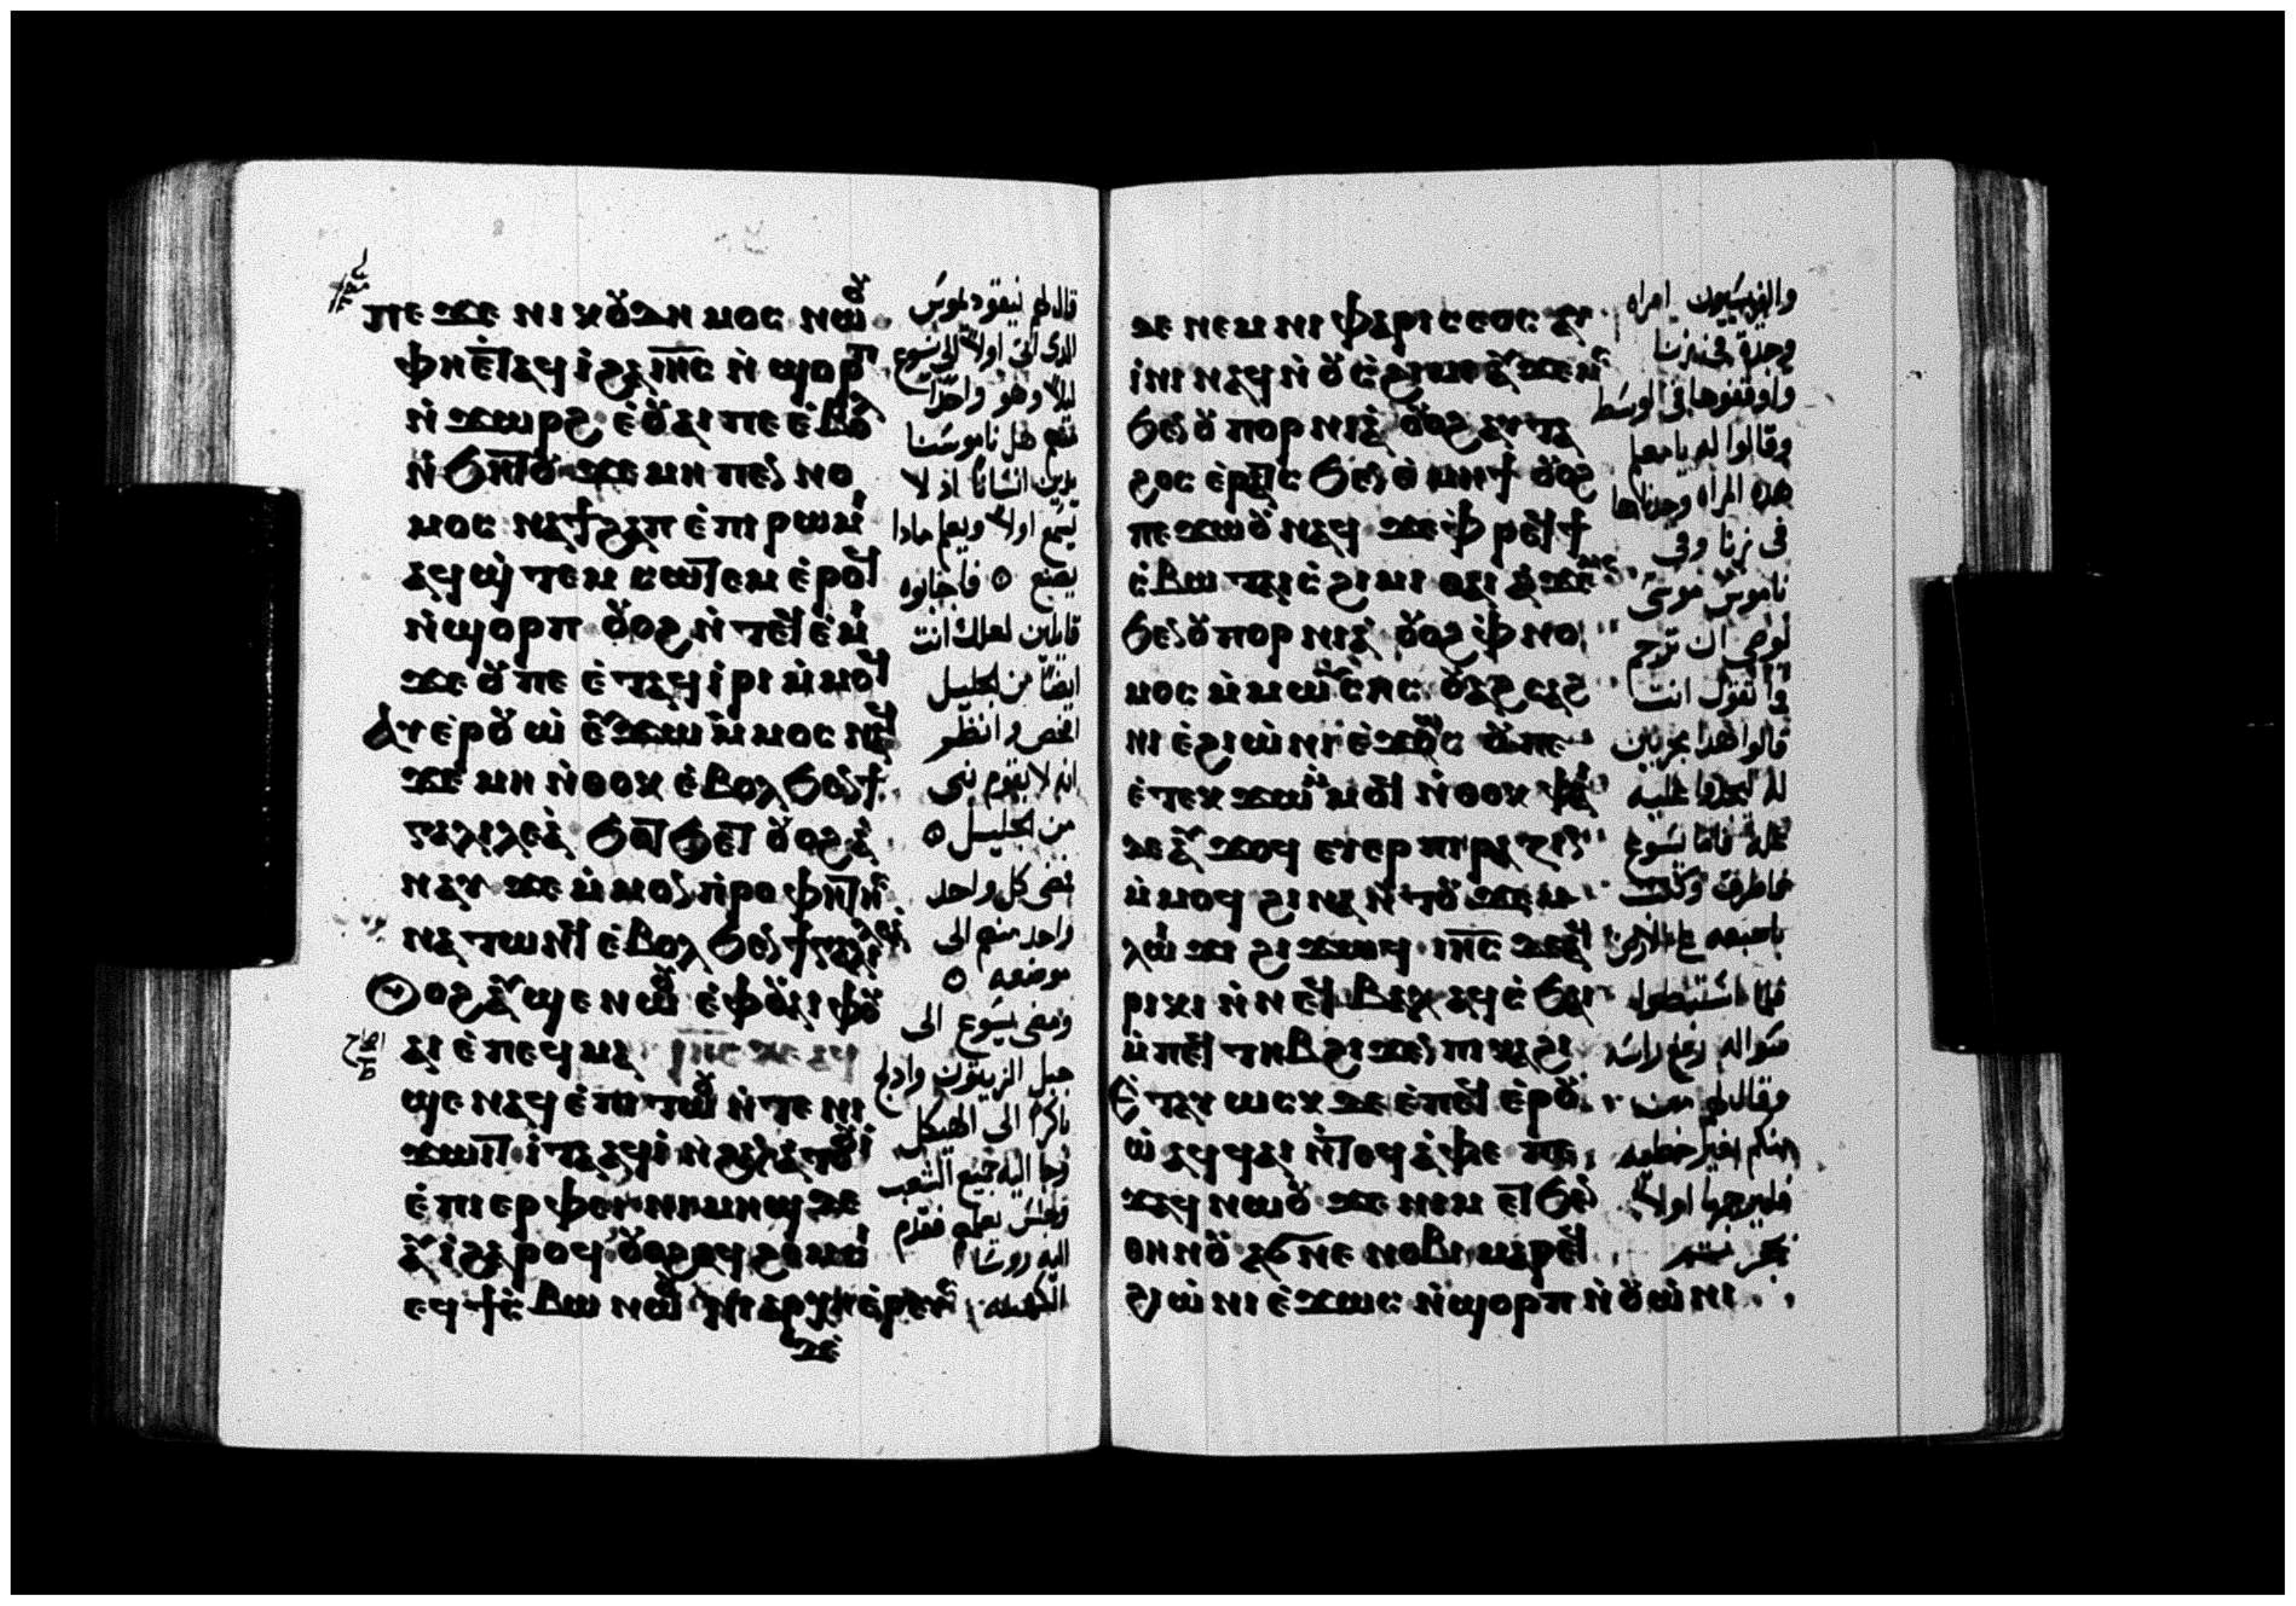 ⲡⲉϫⲉ ⲛⲓⲕⲟⲩⲇⲏⲙⲟⲥ ⲛⲱⲟⲩ
ⲫⲏⲉⲧⲁϥⲓ ϩⲁ ⲓⲏⲥ ⲛ̀ϣⲟⲣⲡ
ⲛ̀ϫⲱⲣϩ ⲉ̀ⲟⲩⲁⲓ ⲡⲉ ⲉ̀ⲃⲟⲗ
ⲛ̀ϧⲏⲧⲟⲩ ϫⲉ ⲙⲏ ⲡⲉⲛⲛⲟ
ⲙⲟⲥ ⲛⲁϯϩⲁⲡ ⲉ̀ⲡⲓⲣⲱⲙⲓ
ⲁϥϣ̀ⲧⲉⲙ ⲥⲱⲧⲉⲙ ⲉ̀ⲣⲟϥ
ⲛ̀ϣⲟⲣⲡ ⲟⲩⲟϩ ⲛ̀ⲧⲉϥⲉ̀ⲙⲓ
ϫⲉ ⲟⲩ ⲡⲉ ⲉ̀ⲧⲁϥⲓ̀ⲣⲓ ⲙ̀ⲙⲟϥ
ⲁⲩⲉ̀ⲣⲟⲩⲱ̀ ⲉⲩϫⲱ ⲙ̀ⲙⲟⲥ ⲛⲁϥ
ϫⲉ ⲙⲏ ⲛ̀ⲑⲟⲕ ⲉ̀ⲃⲟⲗ ϧⲉⲛϯ
ⲅⲁⲗⲓⲗⲉⲁ̀ ϧⲟⲧϧⲉⲧ ⲟⲩⲟϩ ⲁ̀
ⲛⲁⲩ ϫⲉ ⲙ̀ⲙⲟⲛ ⲡ̀ⲣⲟⲫⲏⲧⲏⲥ
ⲛⲁⲧⲱⲛϥ ⲉ̀ⲃⲟⲗ ϧⲉⲛϯⲅⲁⲗⲓⲗⲉⲁ̀
ⲟⲩⲟϩ ⲁⲩϣⲉ ⲛⲱⲟⲩ ⲉ̀ⲫⲟⲩⲁⲓ ⲫⲟⲩ
ⲁⲓ ⲉ̀ⲡⲉϥⲙⲁ ⲓⲏⲥ ⲇⲉ ⲁϥ
ϣⲉ ⲛⲁϥ ⲉ̀ⲡⲓⲧⲱⲟⲩ ⲛ̀ⲧⲉ ⲛⲓ
ϫⲱⲓⲧ ⲓ̀ⲧⲁ ⲁϥⲓ̀ ⲛ̀ϩⲁⲛⲁ̀ⲧⲟⲟⲩⲓ̀
ⲉ̀ⲡⲓⲉⲣⲫⲉⲓ ⲛⲓⲙⲏϣ ⲇⲉ
ⲁⲩⲓ̀ ϩⲁⲣⲟϥ ⲟⲩⲟϩ ⲁϥϩⲉⲙⲥⲓ
ⲉϥϯⲥ̀ⲃⲱ ⲛⲱⲟⲩ ⲛⲓⲁⲣⲭⲏⲉ̀ⲣⲉⲩⲥ
ⲇⲉ
قال لهم نيقوديموس
الذى اتى اولا الى يسوع
ليلا وهو واحدا
منهم هل ناموسنا
يدين انسانا اذ لا
يسمع اولا ويعلم مادا
يصنع ۝ فاجابوه
قايلين لعلك انت
ايضا من الجليل
افحص وانظر
انه لا يقوم نبى
من الجليل ۝
فمضى كل واحد
واحد منهم الى
موضعه ۝
ومضى يسوع الى
جبل الزيتون وادلج
باكرا الى الهيكل
وجا اليه جميع الشعب
وجلس يعلمهم فقدم
اليه روسا
الكهنه
ⲇⲉ ⲛⲉⲙ ⲛⲓⲫⲁⲣⲓⲥⲉⲟⲥ ⲁⲩ
ⲓ̀ⲛⲓ ⲛⲁϥ ⲛ̀ⲟⲩⲥ̀ϩⲓⲙⲉ ⲁⲩϫⲉⲙⲥ
ϧⲉⲛ ⲟⲩⲡⲟⲣⲛⲓⲁ̀ ⲟⲩⲟϩ ⲁⲩⲧⲁ
ϩⲟⲥ ⲉ̀ⲣⲁⲧⲥ ϧⲉⲛ ⲑ̀ⲙⲏϯ ⲟⲩⲟϩ
ⲡⲉϫⲱⲟⲩ ⲛⲁϥ ϫⲉ ⲫ̀ⲣⲉϥϯ
ⲥ̀ⲃⲱ ⲧⲁⲓⲥ̀ϩⲓⲙⲓ ⲑⲁⲓ ⲁⲩϫⲉⲙⲥ
ϧⲉⲛ ⲟⲩⲡⲟⲣⲛⲓⲁ̀ ⲟⲩⲟϩ ⲫ̀ⲛⲟ
ⲙⲟⲥ ⲙ̀ⲙⲱⲩⲥⲏⲥ ⲟⲩⲁϩⲥⲁϩ
ⲛⲓ ⲉ̀ϩⲓⲱ̀ⲛⲓ ⲉ̀ϫⲱⲥ ⲟⲩ ⲡⲉ
ⲉ̀ⲧⲉⲕϫⲱ ⲙ̀ⲙⲟϥ ⲛ̀ⲑⲟⲕ ⲫⲁⲓ
ⲇⲉ ⲁⲩϫⲟϥ ⲉⲩⲉⲣⲡⲓⲣⲁⲍⲓⲛ
ⲙ̀ⲙⲟϥ ϩⲓⲛⲁ ⲛ̀ⲧⲟⲩϫⲉⲙ
ⲗⲱⲓϫⲓ ϩⲓϫⲱϥ ⲓⲏⲥ ⲇⲉ ⲁϥ
ⲣⲓⲕⲓ ⲛ̀ⲛⲉϥⲃⲁⲗ ⲁϥⲥ̀ϧⲁⲓ
ⲙ̀ⲡⲉϥⲧⲏⲃ ϩⲓϫⲉⲛ ⲡⲓⲕⲁϩⲓ
ⲉ̀ⲧⲁⲩⲱⲥⲕ ⲇⲉ ⲉ̀ⲡⲉϥⲉ̀ⲣⲟⲩ
ⲱ̀ ⲁϥϥⲁⲓ ⲛ̀ⲧⲟϥ ⲁ̀ⲫⲉ ⲡⲉ
ϫⲁϥ ⲛⲱⲟⲩ ϫⲉ ⲛⲓⲙ ⲉⲧϧⲉⲛ
ⲑⲏⲛⲟⲩ ⲁϭⲛⲉ ⲛⲟⲃⲓ ⲙⲁⲣⲉϥ
ϩⲓⲱ̀ⲛⲓ ⲉ̀ϫⲱⲥ ⲛ̀ϣⲟⲣⲡ ⲛ̀ⲟⲩⲱ̀ⲛⲓ
والفريسيون امراه
وجدت فى زنا
واوقفوها فى الوسط
وقالوا له يا معلم
هذه المراه وجدناها
فى زنا وفى
ناموس موسى
اوصى ان ترجم
فما تقول انت
قالوا هذا مجربين
له ليجدوا عليه
عله فاما يسوع
فاطرق وكتب
باصبعه على الارض
فلما استبطوا
سواله رفع راسه
وقال لهم من
منكم بغير خطيه
فليرجمها اولا
بحجر